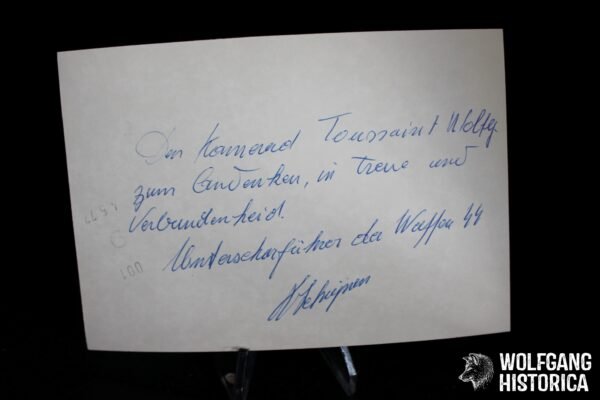 Dem Kamerad Toussaint Wolfg.
zum Andenken, in treue und
Verbundenheid.
Unterscharführer der Waffen SS
WOLFGANG
HISTORICA